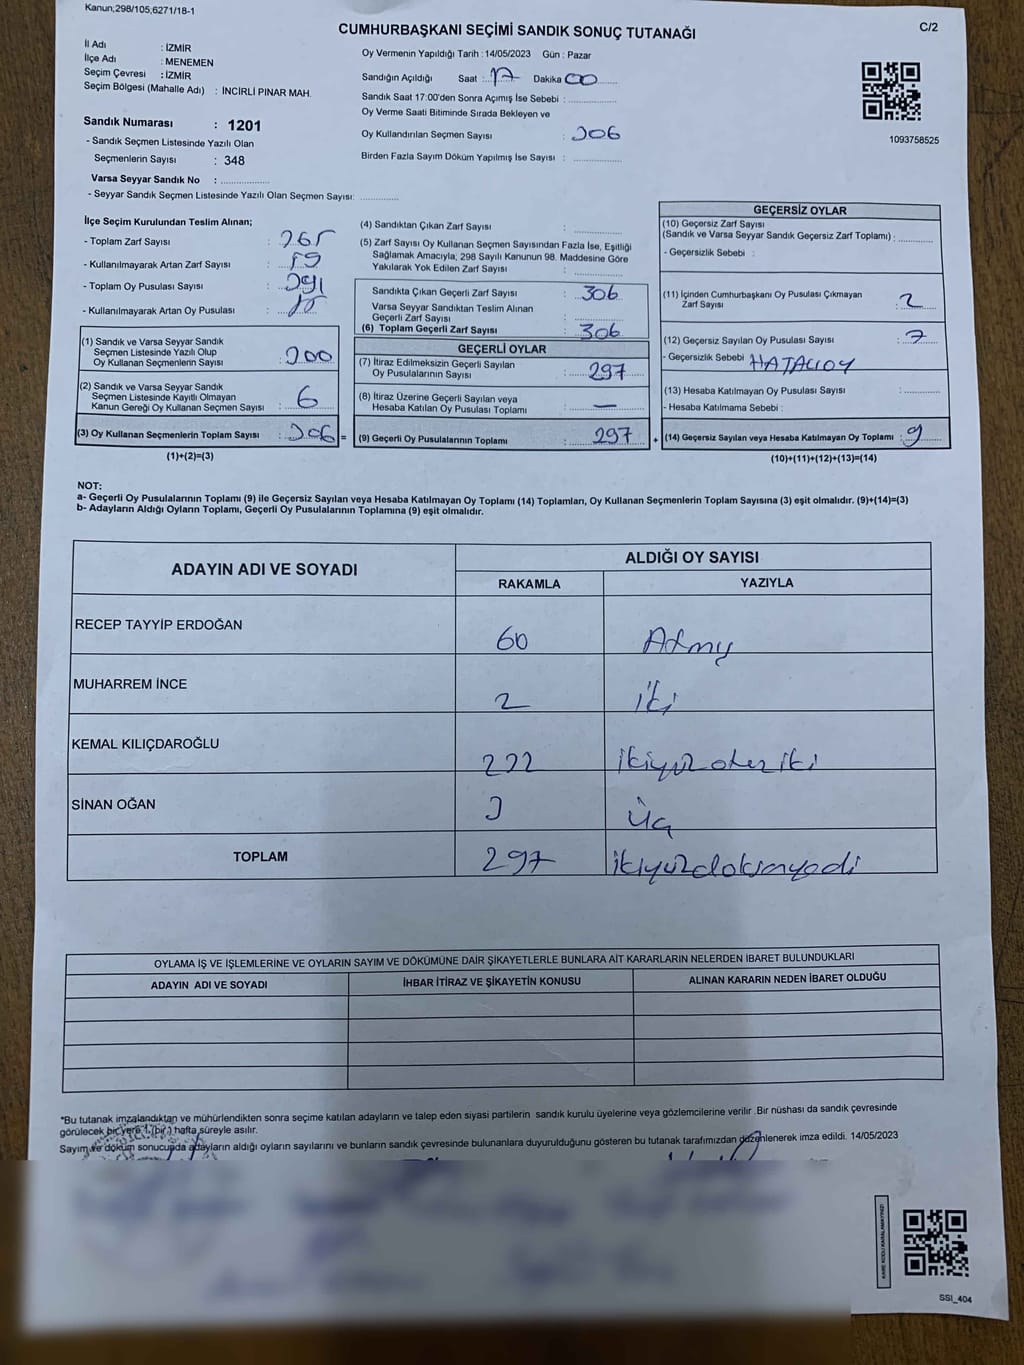 Kanun;298/105,6271/18-1
C/2
CUMHURBAŞKANI SEÇİMİ SANDIK SONUÇ TUTANAĞI
İl Adı : İZMİR
İlçe Adı : MENEMEN
Seçim Çevresi : İZMİR
Seçim Bölgesi (Mahalle Adı) : İNCİRLİ PINAR MAH.
Sandık Numarası : 1201
- Sandık Seçmen Listesinde Yazılı Olan
Seçmenlerin Sayısı : 348
Varsa Seyyar Sandık No : ................
- Seyyar Sandık Seçmen Listesinde Yazılı Olan Seçmen Sayısı: ............
Oy Vermenin Yapıldığı Tarih : 14/05/2023 Gün : Pazar
Sandığın Açıldığı Saat : 17 Dakika 00
Sandık Saat 17:00'den Sonra Açımış İse Sebebi : ................
Oy Verme Saati Bitiminde Sırada Bekleyen ve
Oy Kullandırılan Seçmen Sayısı : 306
Birden Fazla Sayım Döküm Yapılmış İse Sayısı : ................
1093758525
İlçe Seçim Kurulundan Teslim Alınan;
- Toplam Zarf Sayısı : 365
- Kullanılmayarak Artan Zarf Sayısı : 59
- Toplam Oy Pusulası Sayısı : 391
- Kullanılmayarak Artan Oy Pusulası :
(1) Sandık ve Varsa Seyyar Sandık
Seçmen Listesinde Yazılı Olup
Oy Kullanan Seçmenlerin Sayısı : 300
(2) Sandık ve Varsa Seyyar Sandık
Seçmen Listesinde Kayıtlı Olmayan
Kanun Gereği Oy Kullanan Seçmen Sayısı : 6
(3) Oy Kullanan Seçmenlerin Toplam Sayısı : 306 =
(1)+(2)=(3)
(4) Sandıktan Çıkan Zarf Sayısı : ................
(5) Zarf Sayısı Oy Kullanan Seçmen Sayısından Fazla İse, Eşitliği
Sağlamak Amacıyla; 298 Sayılı Kanunun 98. Maddesine Göre
Yakılarak Yok Edilen Zarf Sayısı : ................
Sandıkta Çıkan Geçerli Zarf Sayısı : 306
Varsa Seyyar Sandıktan Teslim Alınan
Geçerli Zarf Sayısı :
(6) Toplam Geçerli Zarf Sayısı : 306
GEÇERLİ OYLAR
(7) İtiraz Edilmeksizin Geçerli Sayılan
Oy Pusulalarının Sayısı : 297
(8) İtiraz Üzerine Geçerli Sayılan veya
Hesaba Katılan Oy Pusulası Toplamı : —
(9) Geçerli Oy Pusulalarının Toplamı : 297 +
GEÇERSİZ OYLAR
(10) Geçersiz Zarf Sayısı
(Sandık ve Varsa Seyyar Sandık Geçersiz Zarf Toplamı) : ............
- Geçersizlik Sebebi :
(11) İçinden Cumhurbaşkanı Oy Pusulası Çıkmayan
Zarf Sayısı : 2
(12) Geçersiz Sayılan Oy Pusulası Sayısı : 7
- Geçersizlik Sebebi HATALIOY
(13) Hesaba Katılmayan Oy Pusulası Sayısı : ............
- Hesaba Katılmama Sebebi :
(14) Geçersiz Sayılan veya Hesaba Katılmayan Oy Toplamı : 9
(10)+(11)+(12)+(13)=(14)
NOT:
a- Geçerli Oy Pusulalarının Toplamı (9) ile Geçersiz Sayılan veya Hesaba Katılmayan Oy Toplamı (14) Toplamları, Oy Kullanan Seçmenlerin Toplam Sayısına (3) eşit olmalıdır. (9)+(14)=(3)
b- Adayların Aldığı Oyların Toplamı, Geçerli Oy Pusulalarının Toplamına (9) eşit olmalıdır.
ADAYIN ADI VE SOYADI
ALDIĞI OY SAYISI
RAKAMLA YAZIYLA
RECEP TAYYİP ERDOĞAN 60 Altmış
MUHARREM İNCE 2 iki
KEMAL KILIÇDAROĞLU 232 ikiyüzotuziki
SİNAN OĞAN 3 üç
TOPLAM 297 ikiyüzdoksanyedi
OYLAMA İŞ VE İŞLEMLERİNE VE OYLARIN SAYIM VE DÖKÜMÜNE DAİR ŞİKAYETLERLE BUNLARA AİT KARARLARIN NELERDEN İBARET BULUNDUKLARI
ADAYIN ADI VE SOYADI İHBAR İTİRAZ VE ŞİKAYETİN KONUSU ALINAN KARARIN NEDEN İBARET OLDUĞU
*Bu tutanak imzalandıktan ve mühürlendikten sonra seçime katılan adayların ve talep eden siyasi partilerin sandık kurulu üyelerine veya gözlemcilerine verilir .Bir nüshası da sandık çevresinde
görülecek bir yere 1 (bir ) hafta süreyle asılır.
Sayım ve döküm sonucunda adayların aldığı oyların sayılarını ve bunların sandık çevresinde bulunanlara duyurulduğunu gösteren bu tutanak tarafımızdan düzenlenerek imza edildi. 14/05/2023
KARE KODU KARALAMAYINIZ!
SSI_404